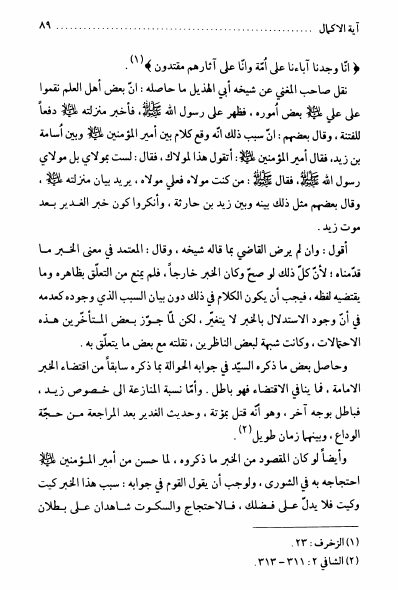 آية الاكمال ........................................ ٨٩
﴿ انّا وجدنا آباءنا على أمّة وانّا على آثارهم مقتدون ﴾(١).
نقل صاحب المغني عن شيخه أبي الهذيل ما حاصله : انّ بعض أهل العلم نقموا
على علي عليه السلام بعض أُموره ، فظهر على رسول الله ﷺ، فأخبر منزلته عليه السلام دفعاً
للفتنة ، وقال بعضهم : انّ سبب ذلك انّه وقع كلام بين أمير المؤمنين عليه السلام وبين أُسامة
بن زيد، فقال أمير المؤمنين عليه السلام : أتقول هذا لمولاك ، فقال : لست بمولاي بل مولاي
رسول الله ﷺ، فقال ﷺ : من كنت مولاه فعلي مولاه ، يريد بيان منزلته عليه السلام ،
وقال بعضهم مثل ذلك بينه وبين زيد بن حارثة ، وأنكروا كون خبر الغدير بعد
موت زيد .
أقول : وان لم يرض القاضي بما قاله شيخه ، وقال : المعتمد في معنى الخبر ما
قدّمناه ؛ لأنّ كلّ ذلك لو صحّ وكان الخبر خارجاً ، فلم يمنع من التعلّق بظاهره وما
يقتضيه لفظه ، فيجب أن يكون الكلام في ذلك دون بيان السبب الذي وجوده كعدمه
في أنّ وجود الاستدلال بالخبر لا يتغيّر ، لكن لمّا جوّز بعض المتأخّرين هذه
الاحتمالات ، وكانت شبهة لبعض الناظرين ، نقلته مع بعض ما يتعلّق به .
وحاصل بعض ما ذكره السيّد في جوابه الحوالة بما ذكره سابقاً من اقتضاء الخبر
الامامة ، فما ينافي الاقتضاء فهو باطل . وأمّا نسبة المنازعة الى خصوص زيد ،
فباطل بوجه آخر ، وهو أنّه قتل بمؤتة ، وحديث الغدير بعد المراجعة من حجّة
الوداع ، وبينهما زمان طويل(٢).
وأيضاً لو كان المقصود من الخبر ما ذكروه ، لما حسن من أمير المؤمنين عليه السلام
احتجاجه به في الشورى ، ولوجب أن يقول القوم في جوابه : سبب هذا الخبر كيت
وكيت فلا يدلّ على فضلك ، فالاحتجاج والسكوت شاهدان على بطلان
(١) الزخرف : ٢٣ .
(٢) الشافي ٢ : ٣١١ – ٣١٣ .